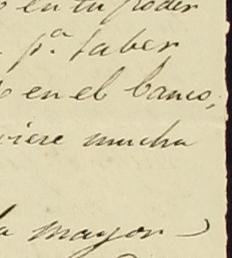 en tu poder
pª. saber
en el banco,
viere mucha
la mayor